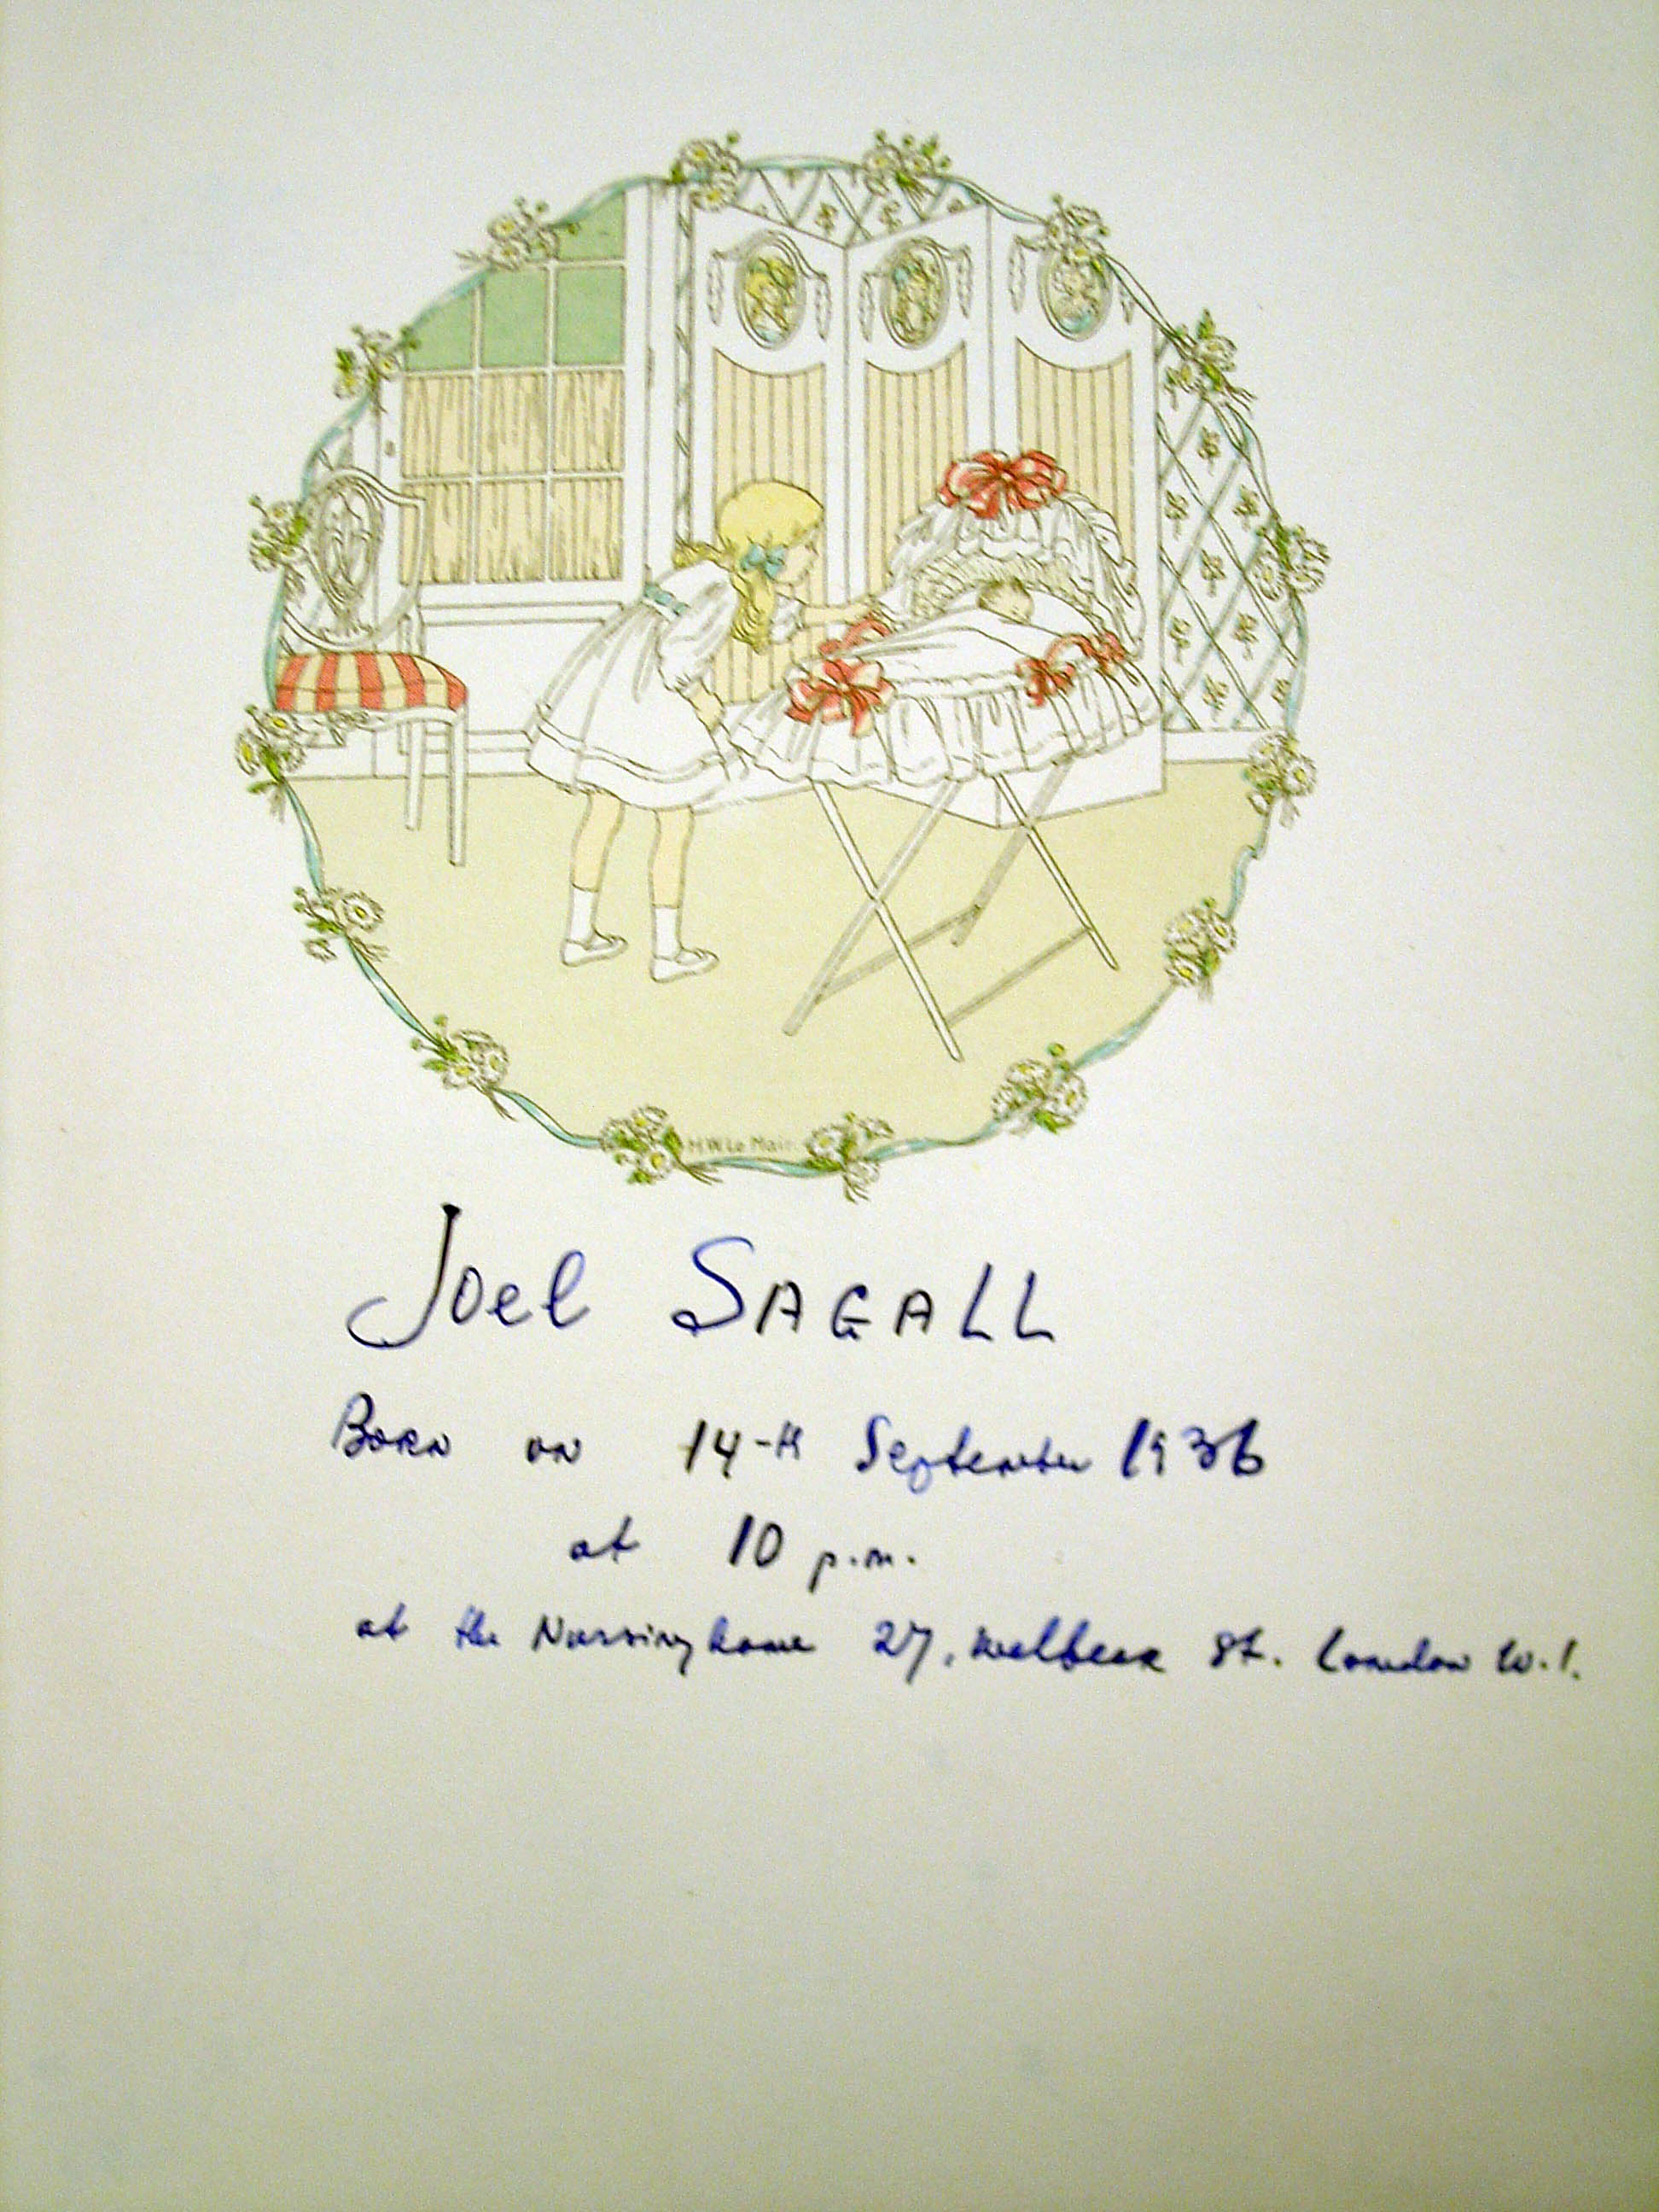 H W Le Mair
Joel SAGALL
Born on 14-th September 1936
at 10 p.m.
at the Nursinghome 27, Welbeck St. London W.1.